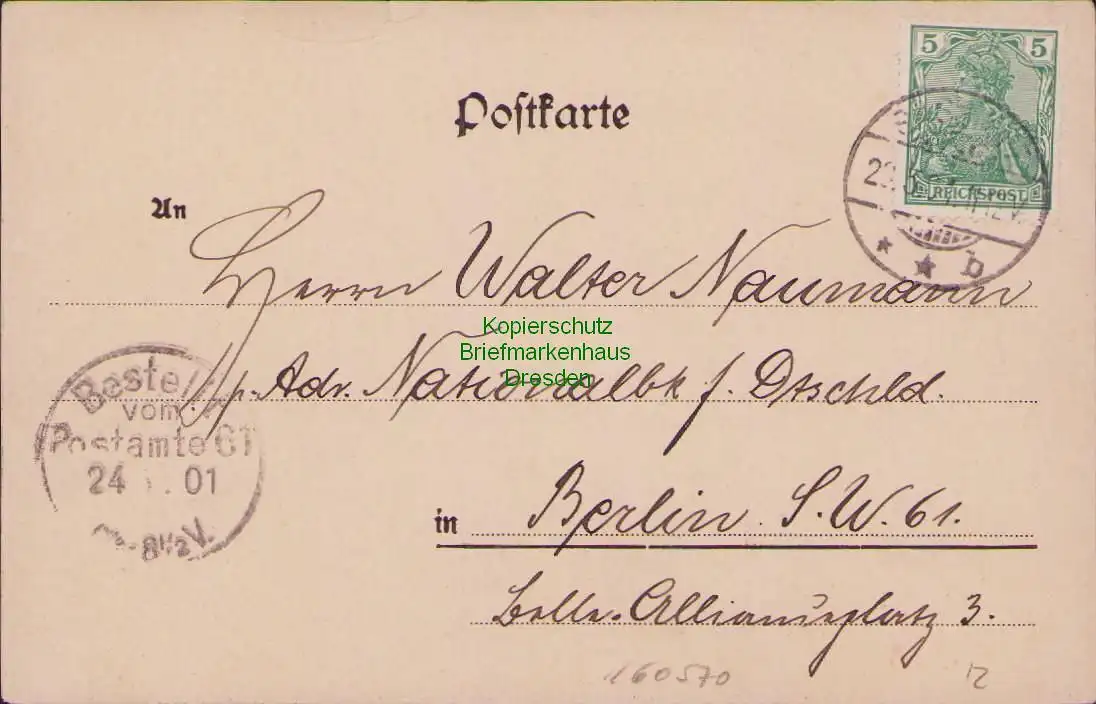 Postkarte
5 5
REICHSPOST
An
Herrn Walter Naumann
p. Adr. Nationalbk f. Dtschld.
in Berlin S.W. 61.
Belle-Allianceplatz 3.
Kopierschutz
Briefmarkenhaus
Dresden
Bestellt
vom
Postamte 61
24 . 01
8½V.
b
160570